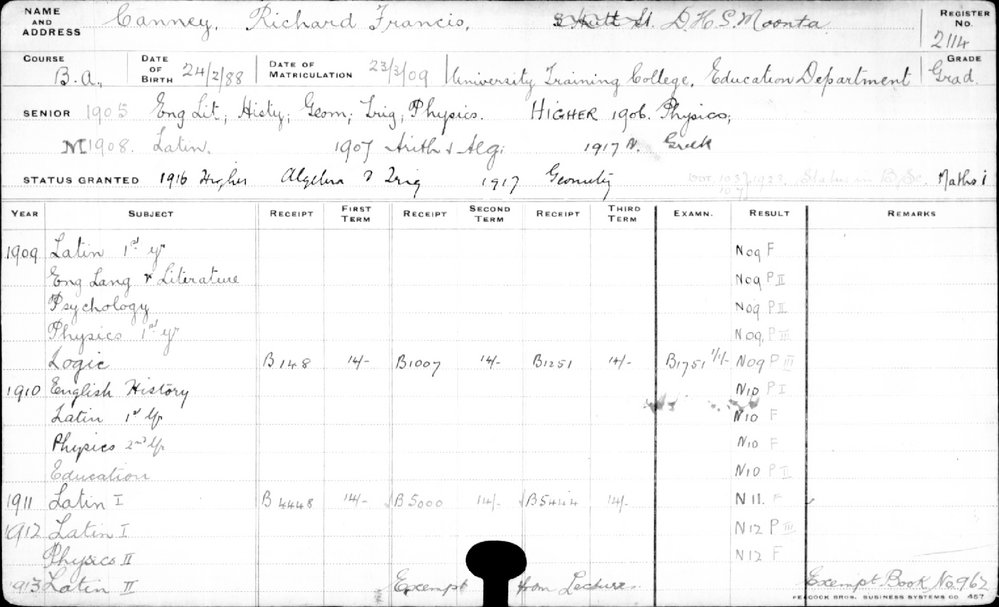 NAME AND ADDRESS Canney, Richard Francis, Hutt St. D.H.S. Moonta REGISTER No. 2114
COURSE B.A., DATE OF BIRTH 24/2/88 DATE OF MATRICULATION 23/3/09 University Training College, Education Department GRADE Grad.
SENIOR 1905 Eng Lit; Histy; Geom; Trig; Physics. HIGHER 1906. Physics;
M1908. Latin. 1907 Arith & Alg: 1917 N. Greek
STATUS GRANTED 1916 Higher Algebra & Trig 1917 Geometry Status in B.Sc. Maths I
YEAR SUBJECT RECEIPT FIRST TERM RECEIPT SECOND TERM RECEIPT THIRD TERM EXAMN. RESULT REMARKS
1909 Latin 1st yr N09 F
Eng Lang & Literature N09 P II
Psychology N09 P II
Physics 1st yr N09, P III
Logic B148 14/- B1007 14/- B1251 14/- B1751 1/1/- N09 P III
1910 English History N10 P I
Latin 1st Yr N10 F
Physics 2nd Yr N10 F
Education N10 P II
1911 Latin I B4448 14/- B5000 14/- B5444 14/- N11. F
1912 Latin I N12 P III
Physics II N12 F
1913 Latin II Exempt from Lectures Exempt Book No. 962
PEACOCK BROS. BUSINESS SYSTEMS CO 457